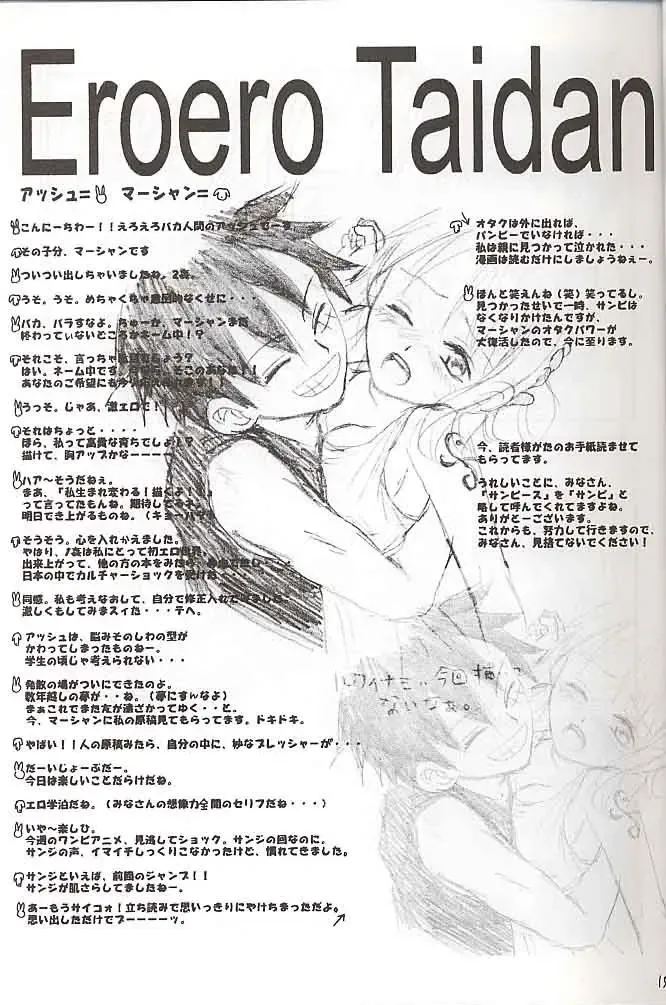 Eroero Taidan
アッシュ= マーシャン=
こんにーちわー!!えろえろバカ人間のアッシュでーす。
その子分、マーシャンです
ついつい出しちゃいましたね。2裏。
うそ。うそ。めちゃくちゃ意図的なくせに・・・
バカ、バラすなよ。ちゅーか、マーシャンまだ
終わってぃないところかネーム中!?
それこそ、言っちゃ
はい。ネーム中です。
あなたのご希望にも
うっそ。じゃあ、激エロで!
それはちょっと・・・・
ほら、私って高貴な育ちでしょ!?
描けて、胸アップかなーーーー
ハア〜そうだねぇ。
まあ、「私生まれ変わる!描くよ!!」
って言ってたもんね。期待してるネ。
明日でき上がるものね。(キョーハク)
そうそう。心を入れかえました。
やはり、1裏は私にとって初エロ世界。
出来上がって、他の方の本をみたら、
日本の中でカルチャーショックを受けた・・・
同感。私も考えなおして、自分で修正入れて
激しくもしてみまスィた・・・テヘ。
アッシュは、脳みそのしわの型が
かわってしまったものねー。
学生の頃じゃ考えられない・・・
発散の場がついにできたのよ。
数年越しの夢が・・ね。(夢にすんなよ)
まぁこれでまた友が遠ざかってゆく・・と。
今、マーシャンに私の原稿見てもらってます。ドキドキ。
やばい!!人の原稿みたら、自分の中に、妙なプレッシャーが・・・
だーいじょーぶだー。
今日は楽しいことだらけだね。
エロ学泊だね。(みなさんの想像力全開のセリフだね・・・)
いや〜楽しひ。
今週のワンピアニメ、見逃してショック。サンジの回なのに。
サンジの声、イマイチしっくりこなかったけど、慣れてきました。
サンジといえば、前回のジャンプ!!
サンジが肌さらしてましたねー。
あーもうサイコォ!立ち読みで思いっきりにやけちまっただよ。
思い出しただけでブーーーーッ。
オタクは外に出れば、
パンピーでいなければ・・・
私は親に見つかって泣かれた・・・
漫画は読むだけにしましょうねぇー。
ほんと笑えんね(笑)笑ってるし。
見つかったせいで一時、サンピは
なくなりかけたんですが、
マーシャンのオタクパワーが
大復活したので、今に至ります。
今、読者様がたのお手紙読ませて
もらってます。
うれしいことに、みなさん、
「サンピース」を「サンピ」と
略して呼んでくれてますよね。
ありがとーございます。
これからも、努力して行きますので、
みなさん、見捨てないでください!
ルフィナミ‥今回描いて
ないなぁ。